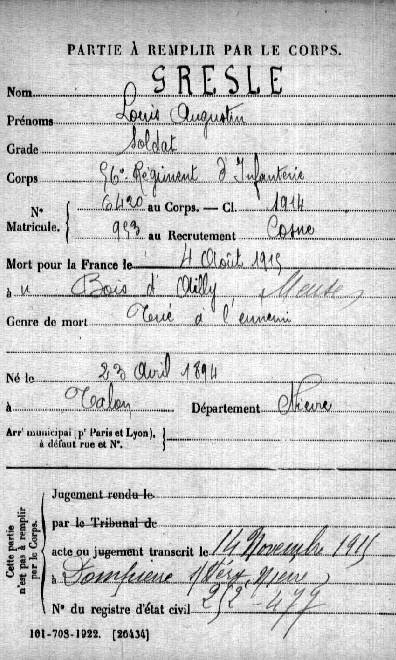 PARTIE À REMPLIR PAR LE CORPS.
Nom GRESLE
Prénoms Louis Augustin
Grade Soldat
Corps 56e Régiment d'Infanterie
N° Matricule. { 6420 au Corps. — Cl. 1914
953 au Recrutement Cosne
Mort pour la France le 4 Août 1915
à u Bois d'Ailly Meuse
Genre de mort Tué a l'ennemi
Né le 23 Avril 1894
à Talon Département Nièvre
Arrt municipal (pr Paris et Lyon), à défaut rue et N°. {
Cette partie n'est pas à remplir par le Corps.
Jugement rendu le
par le Tribunal de
acte ou jugement transcrit le 14 Novembre 1915
à Dompierre s/ Nièvre
N° du registre d'état civil 252-479
101-708-1922. [26434]